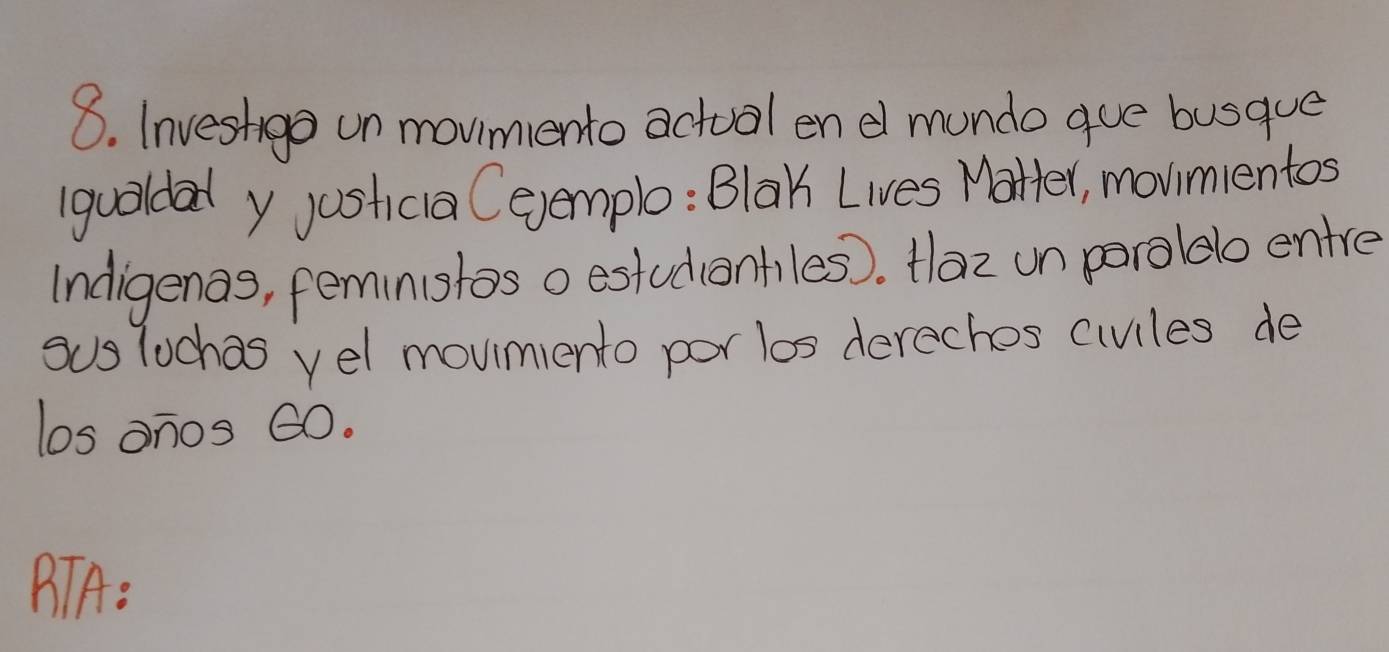 8. Investiga un movimiento actual en el mundo que busque
igualdad y justicia (ejemplo: Blak Lives Matter, movimientos
indígenas, feministas o estudiantiles). Haz un paralelo entre
sus luchas y el movimiento por los derechos civiles de
los años 60.
RTA: